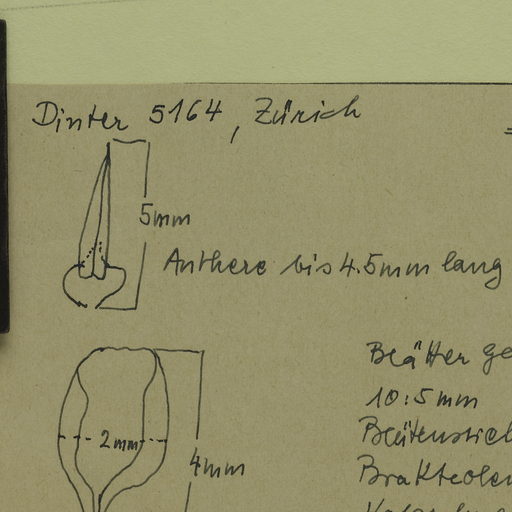 Dinter 5164, Zürich
5mm
Anthere bis 4.5mm lang
Blätter ge
10:5mm
2mm
Blütenstiel
4mm
Brakteolen